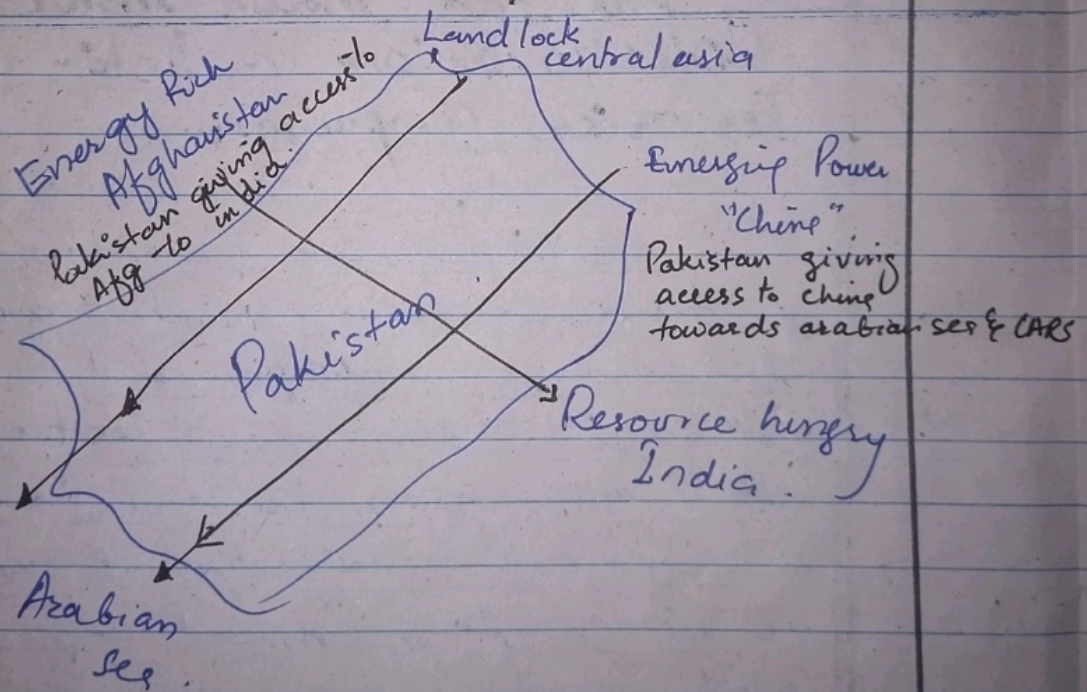 Land lock
central asia
Energy Rich
Afghanistan
Pakistan giving access to
Afg to india.
Emerging Power
"Chine"
Pakistan giving
access to chine
towards arabian sea & CARS
Pakistan
Resource hungry
India.
Arabian
sea.